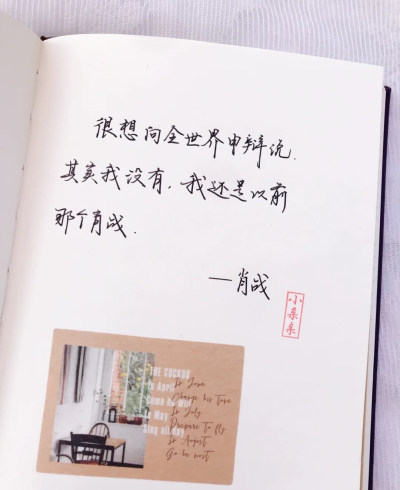 很想向全世界申辩说.
其实我没有,我还是以前
那个肖战.
—肖战
小亲亲
THE CUCKOO
In April
Come he will
In May
Sing all day
In June
Change his tune
In July
Prepare to fly
In August
Go he must